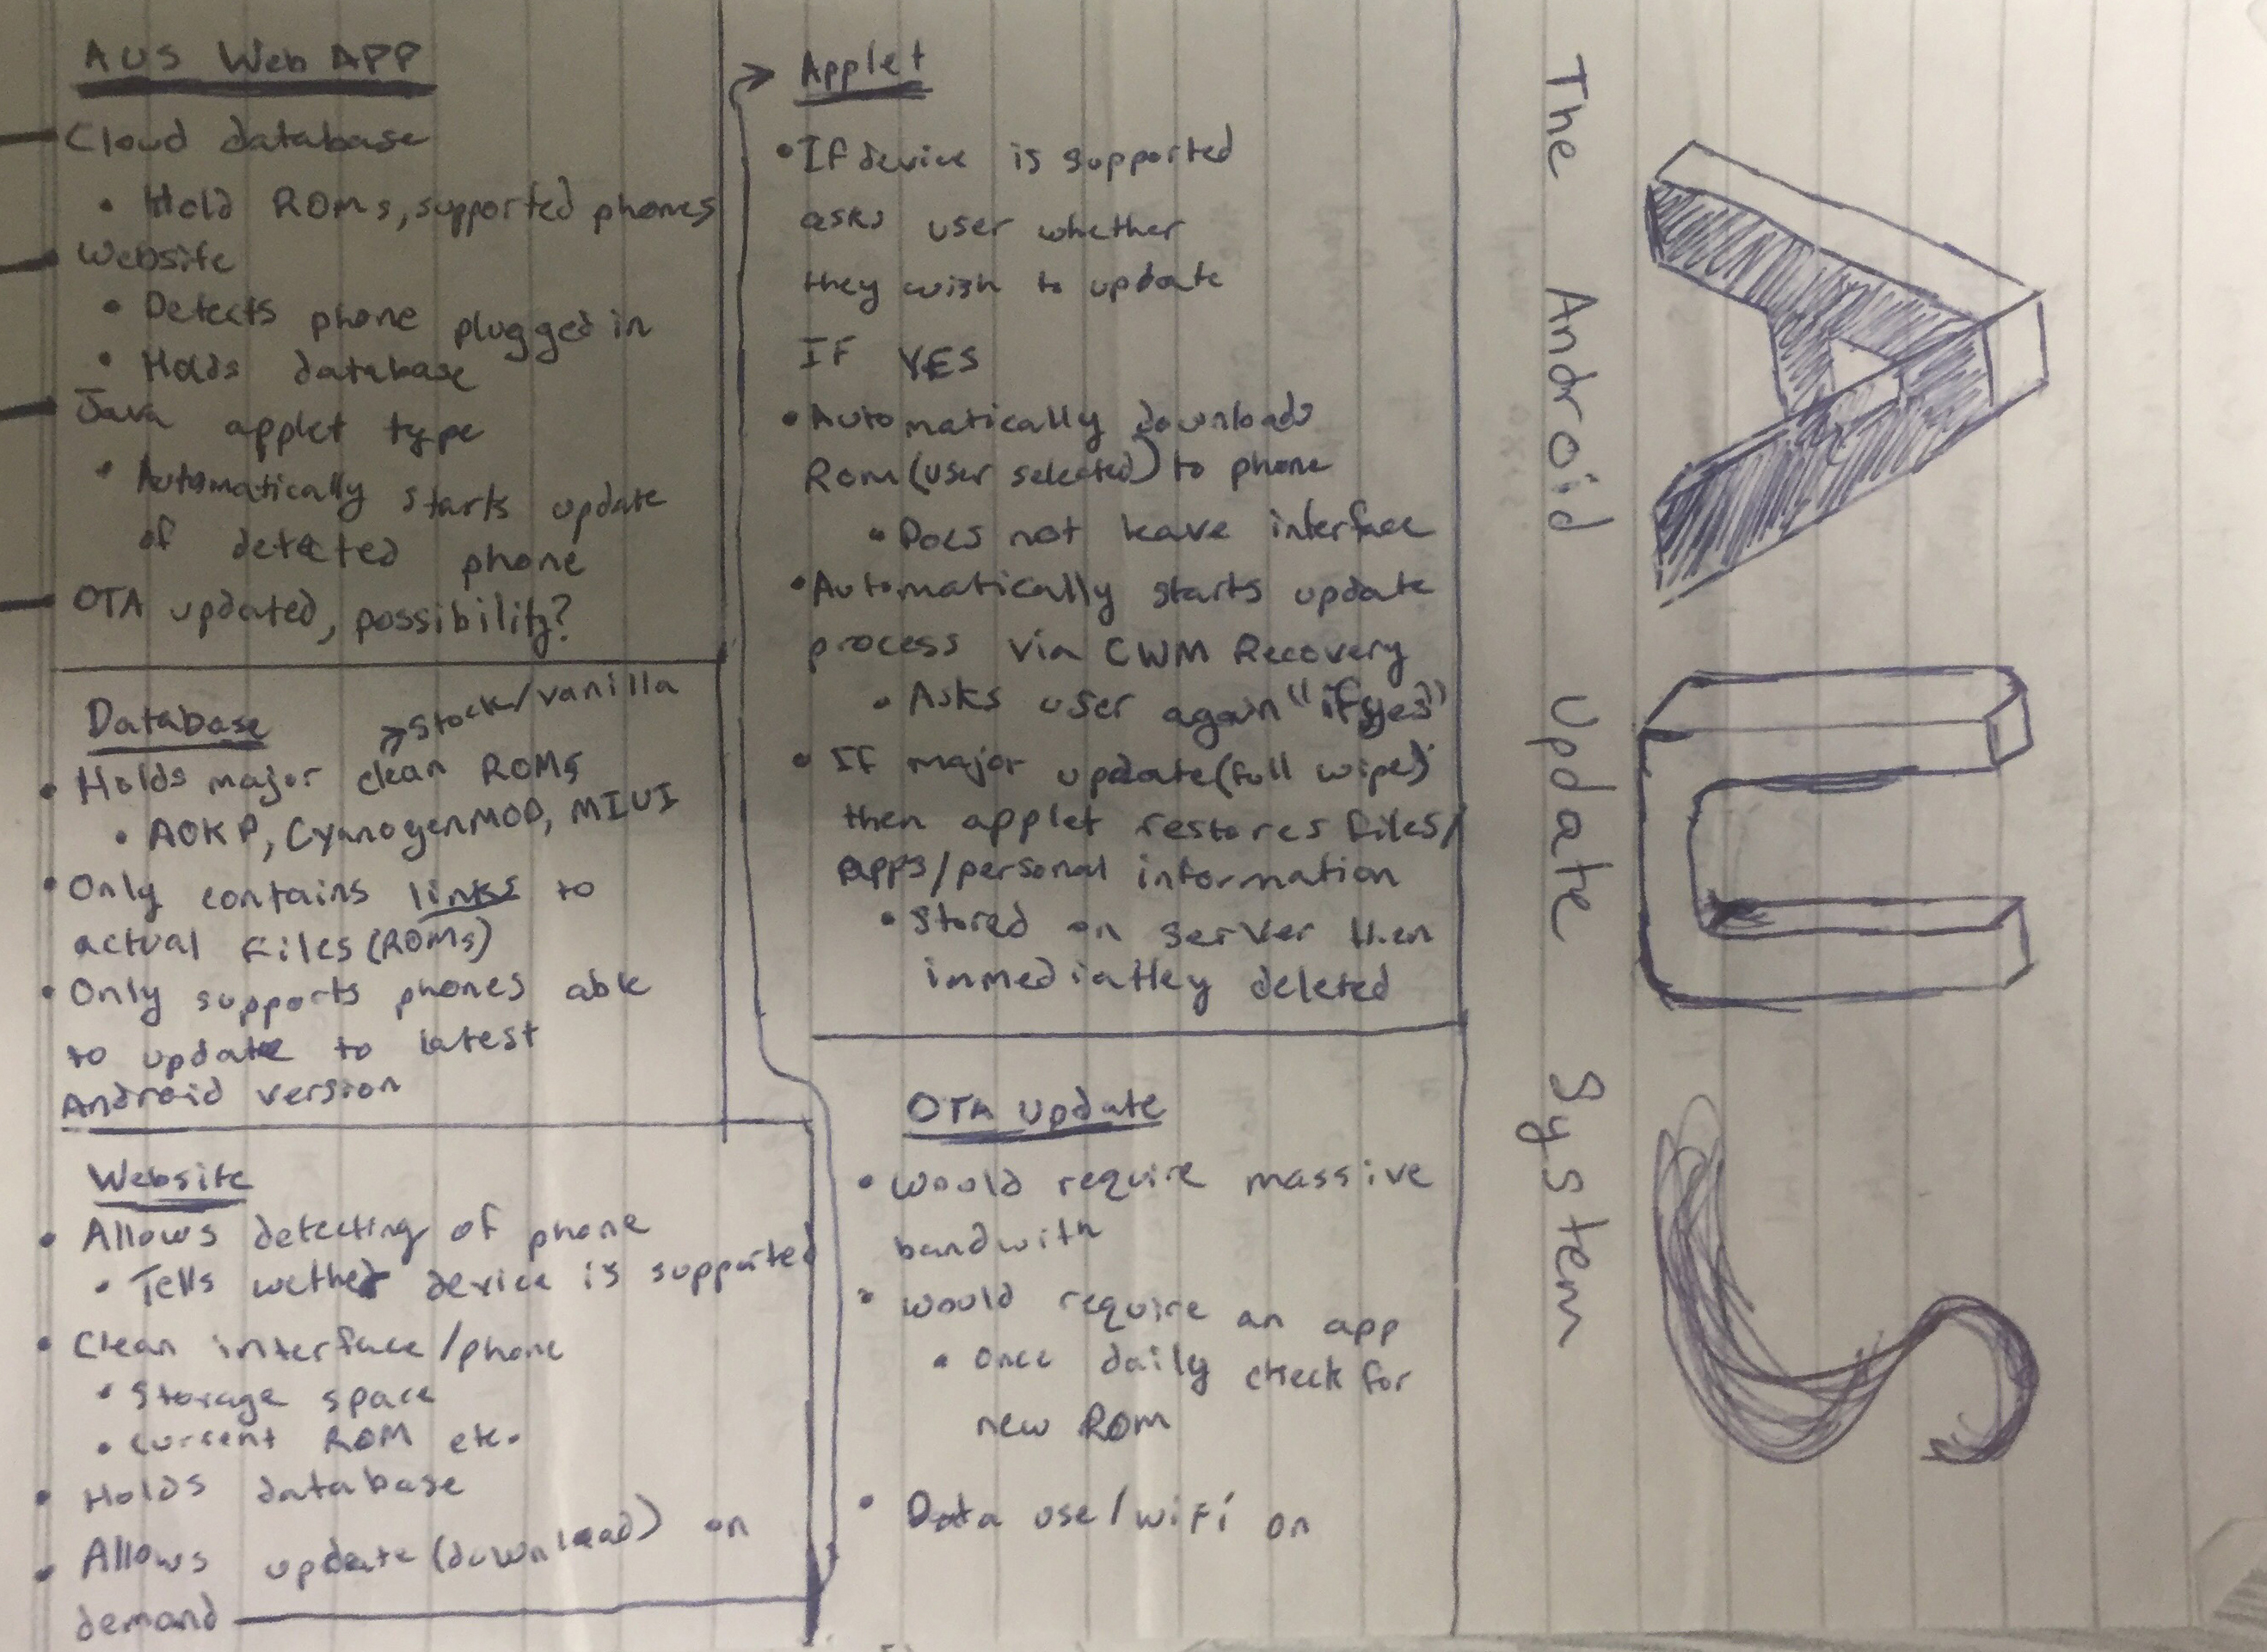 AUS Web APP
Cloud database
• Hold ROMs, supported phones
Website
• Detects phone plugged in
• Holds database
Java applet type
• Automatically starts update
of detected phone
OTA updated, possibility?
Database
→ stock/vanilla
• Holds major clean ROMs
• AOKP, CyanogenMOD, MIUI
• Only contains links to
actual files (ROMs)
• Only supports phones able
to update to latest
Android version
Website
• Allows detecting of phone
• Tells wether device is supported
• Clean interface/phone
• Storage space
• current ROM etc.
• Holds database
• Allows update (download) on
demand
Applet
• If device is supported
asks user whether
they wish to update
IF YES
• Automatically downloads
Rom (user selected) to phone
• Does not leave interface
• Automatically starts update
process via CWM Recovery
• Asks user again "if yes"
• If major update (full wipe)
then applet restores files/
apps/personal information
• Stored on server then
immediatley deleted
OTA update
• would require massive
bandwith
• would require an app
• once daily check for
new ROM
• Data use/wifi on
The Android Update System
AUS